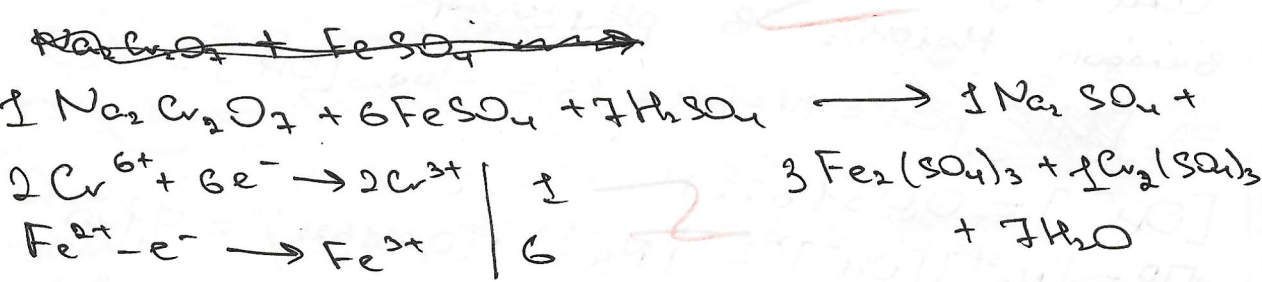 Na₂Cr₂O₇ + FeSO₄ →
1 Na₂Cr₂O₇ + 6FeSO₄ + 7H₂SO₄ → 1Na₂SO₄ +
3Fe₂(SO₄)₃ + 1Cr₂(SO₄)₃
+ 7H₂O
2Cr⁶⁺ + 6e⁻ → 2Cr³⁺ | 1
Fe²⁺ - e⁻ → Fe³⁺ | 6